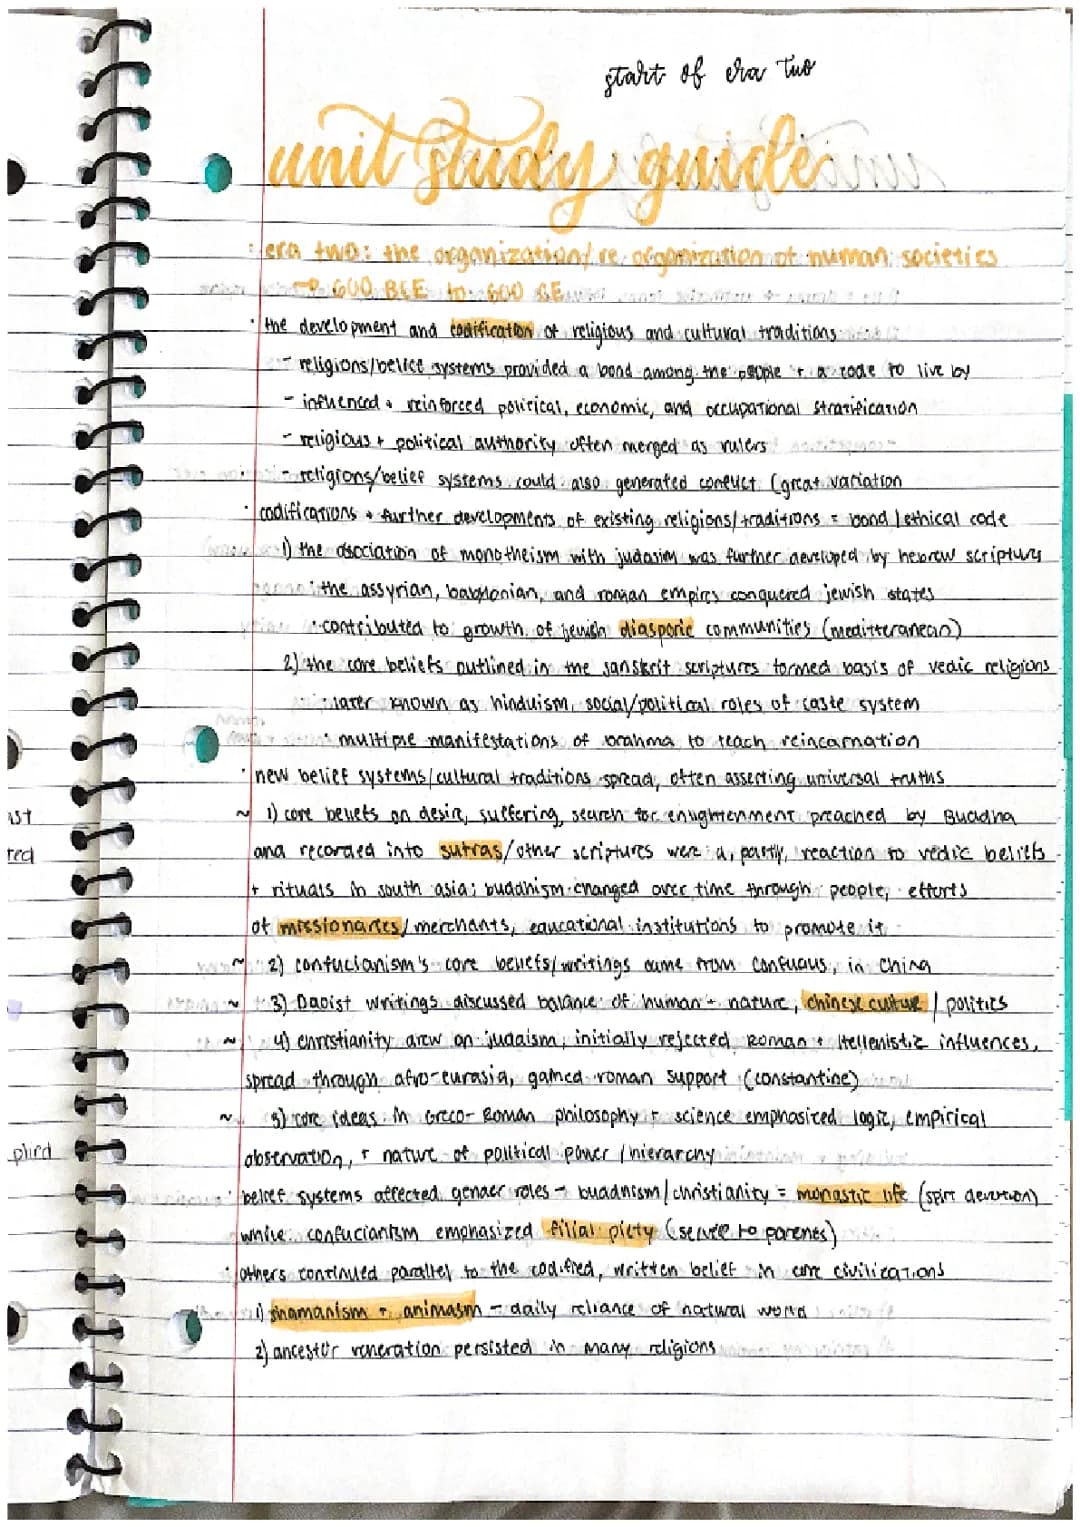 start of era two
unit study guide
· era two: the organization/re organization of human societies
→ 600 BCE to 600 CE
· the development and codification of religious and cultural traditions
- religions/belief systems provided a bond among the people + a code to live by
- influenced + reinforced political, economic, and occupational stratification
- religious + political authority often merged as rulers
- religions/belief systems could also generated conflict (great variation
· codifications + further developments of existing religions/traditions = bond/ethical code
1) the association of monotheism with judasim was further developed by hebrew scripture
· the assyrian, babylonian, and roman empires conquered jewish states
· contributed to growth of jewish diasporic communities (meditteranean)
2) the core beliefs outlined in the sanskrit scriptures formed basis of vedic religions
· later known as hinduism, social/political roles of caste system
· multiple manifestations of brahma to teach reincarnation
· new belief systems/cultural traditions spread, often asserting universal truths
~ 1) core beliefs on desire, suffering, search for enlightenment preached by Buddha
and recorded into sutras/other scriptures were a, partly, reaction to vedic beliefs
+ rituals in south asia; buddhism changed over time through people, efforts
of missionaries/merchants, educational institutions to promote it
~ 2) confucianism's core beliefs/writings came from Confucius, in China
~ 3) Daoist writings discussed balance of human + nature, chinese culture / politics
~ 4) christianity drew on judaism, initially rejected Roman + Hellenistic influences,
spread through afro-eurasia, gained roman support (constantine)
~ 5) core ideas in Greco-Roman philosophy + science emphasized logic, empirical
observation, + nature of political power/hierarchy
· belief systems affected gender roles - buddhism/christianity = monastic life (spirt devotion)
while confucianism emphasized filial piety (service to parents)
· others continued parallel to the codified, written belief in core civilizations
1) shamanism + animasm - daily reliance of natural world
2) ancestor veneration persisted in many religions